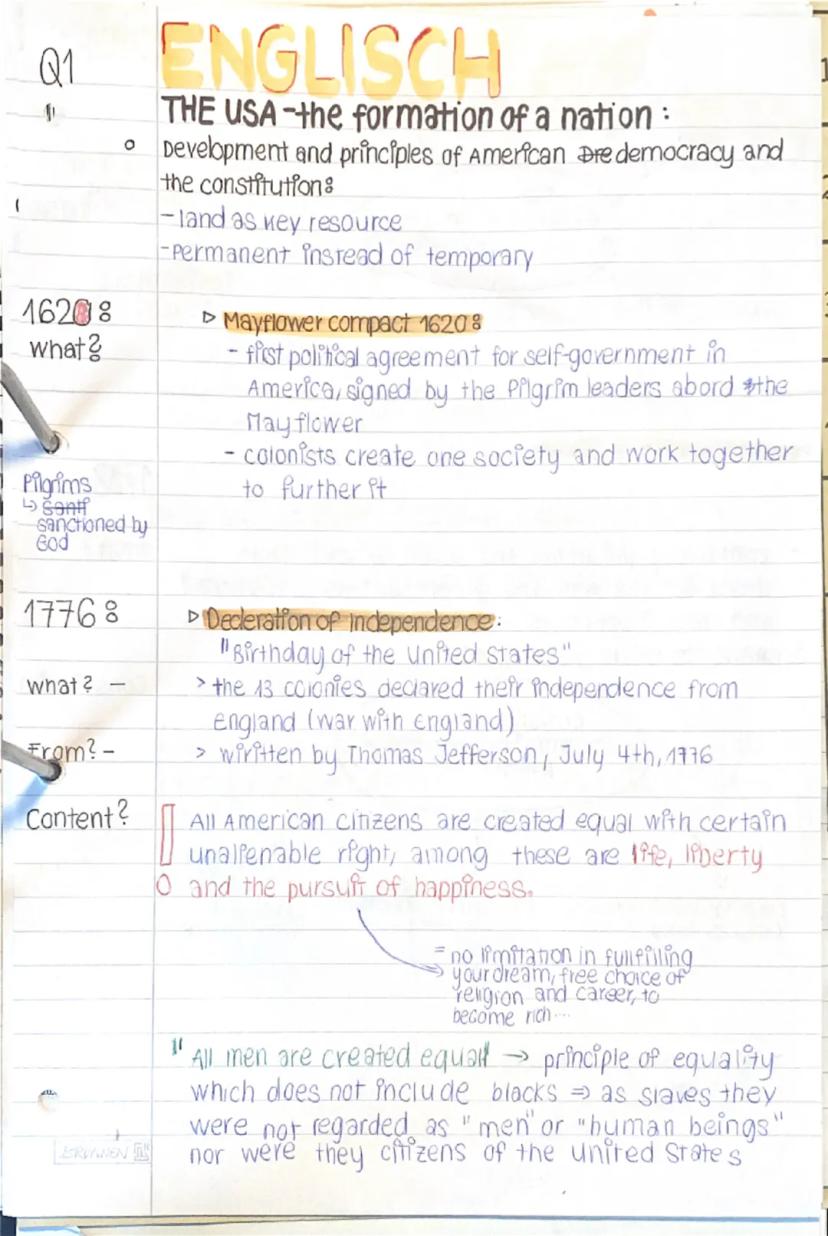 Q1
ENGLISCH
THE USA - the formation of a nation :
Development and principles of American Dre democracy and
the constitution:
- land as key resource
- permanent instead of temporary
1620:
what?
▷ Mayflower compact 1620:
- first political agreement for self-government in
America, signed by the Pilgrim leaders abord the
Mayflower
- colonists create one society and work together
to further it
Pilgrims
↳ santi
sanctioned by
God
1776:
▷ Decleration of Independence:
"Birthday of the United States"
what? -
> the 13 colonies declared their independence from
England (war with England)
From? -
> wiritten by Thomas Jefferson, July 4th, 1776
Content?
All American citizens are created equal with certain
unalienable right, among these are life, liberty
and the pursuit of happiness.
= no limitation in fullfilling
your dream, free choice of
religion and career, to
become rich...
"All men are created equal" → principle of equality
which does not include blacks ⇒ as slaves they
were not regarded as "men" or "human beings"
nor were they citizens of the United States
BRUNNEN